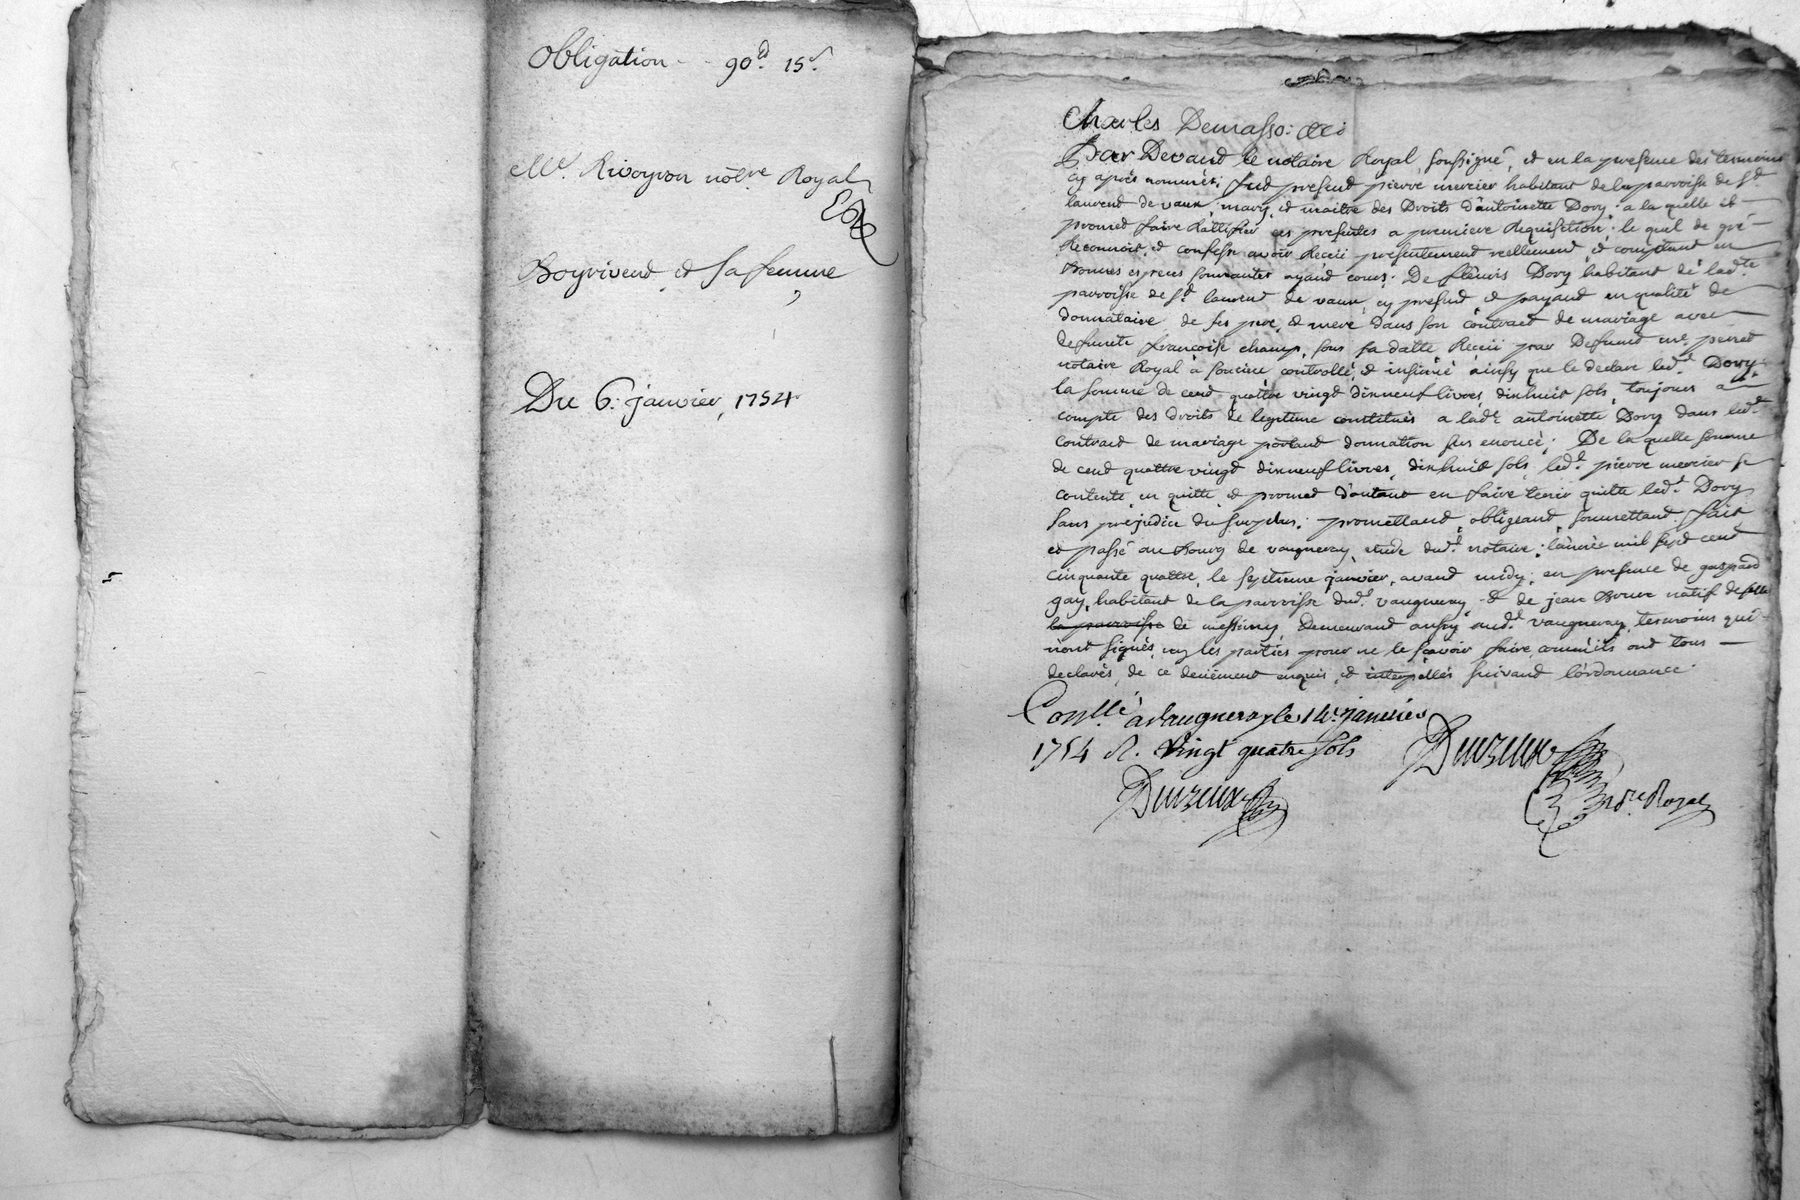 Obligation - - 90# 15s.
Me. Rivoyron notre Royal
Boyrivend et sa femme
Du 6: janvier, 1754
Charles Demasso:
Par Devand le notaire Royal, soussigné, et en la presence des temoins
cy après nommés; fud present pierre mercier habitant de la parroisse de St
laurend de vaux, mary, et maitre des Droits d'antoinette Dory; a la quelle il
promed faire Rattifier ces presentes a premiere Requisition; le quel de gré
Reconnoit et confesse avoir Receu presentement reellement et comptant en
bonnes especes sonnantes ayand cours; De fleuris Dory habitant de lad.te
parroisse de St laurend de vaux, cy present et payand en qualité de
donnataire de ses pere, et mere dans son contract de mariage avec
defunte francoise champ, sous sa datte Receu par Defund me perret
notaire Royal à soucieu controllé, et insinué ainsy que le declare led.t Dory,
la somme de cend quattre vingt dixneuf livres, dixhuit sols, toujours a
compte des droits de legitime constitués a lad.e antoinette Dory dans led.t
contract de mariage portand donnation sus enoncé; De la quelle somme
de cend quattre vingt dixneuf livres, dixhuit sols, led.t pierre mercier se
contente, en quitte et promed d'autant en faire tenir quitte led.t Dory
sans prejudice du surplus; promettand, obligeand, soumettand. fait
et passé au bourg de vaugneray, etude dud.t notaire; l'année mil sept cend
cinquante quattre, le septieme janvier, avand midy; en presence de gaspard
gay, habitant de la parroisse dud.t vaugneray, et de jean
la parroisse de messimy, Demeurand aussy aud.t vaugneray, tesmoins qui
n'ont signés, ny les parties pour ne le scavoir faire, comm'ils ont tous
declarés, de ce deüement enquis, et interpellés suivand l'ordonnance.
Conllé à Vaugneray le 14e janvier
1754 R. vingt quatre sols
Duvzeux
Duvzeux
Nore Royal